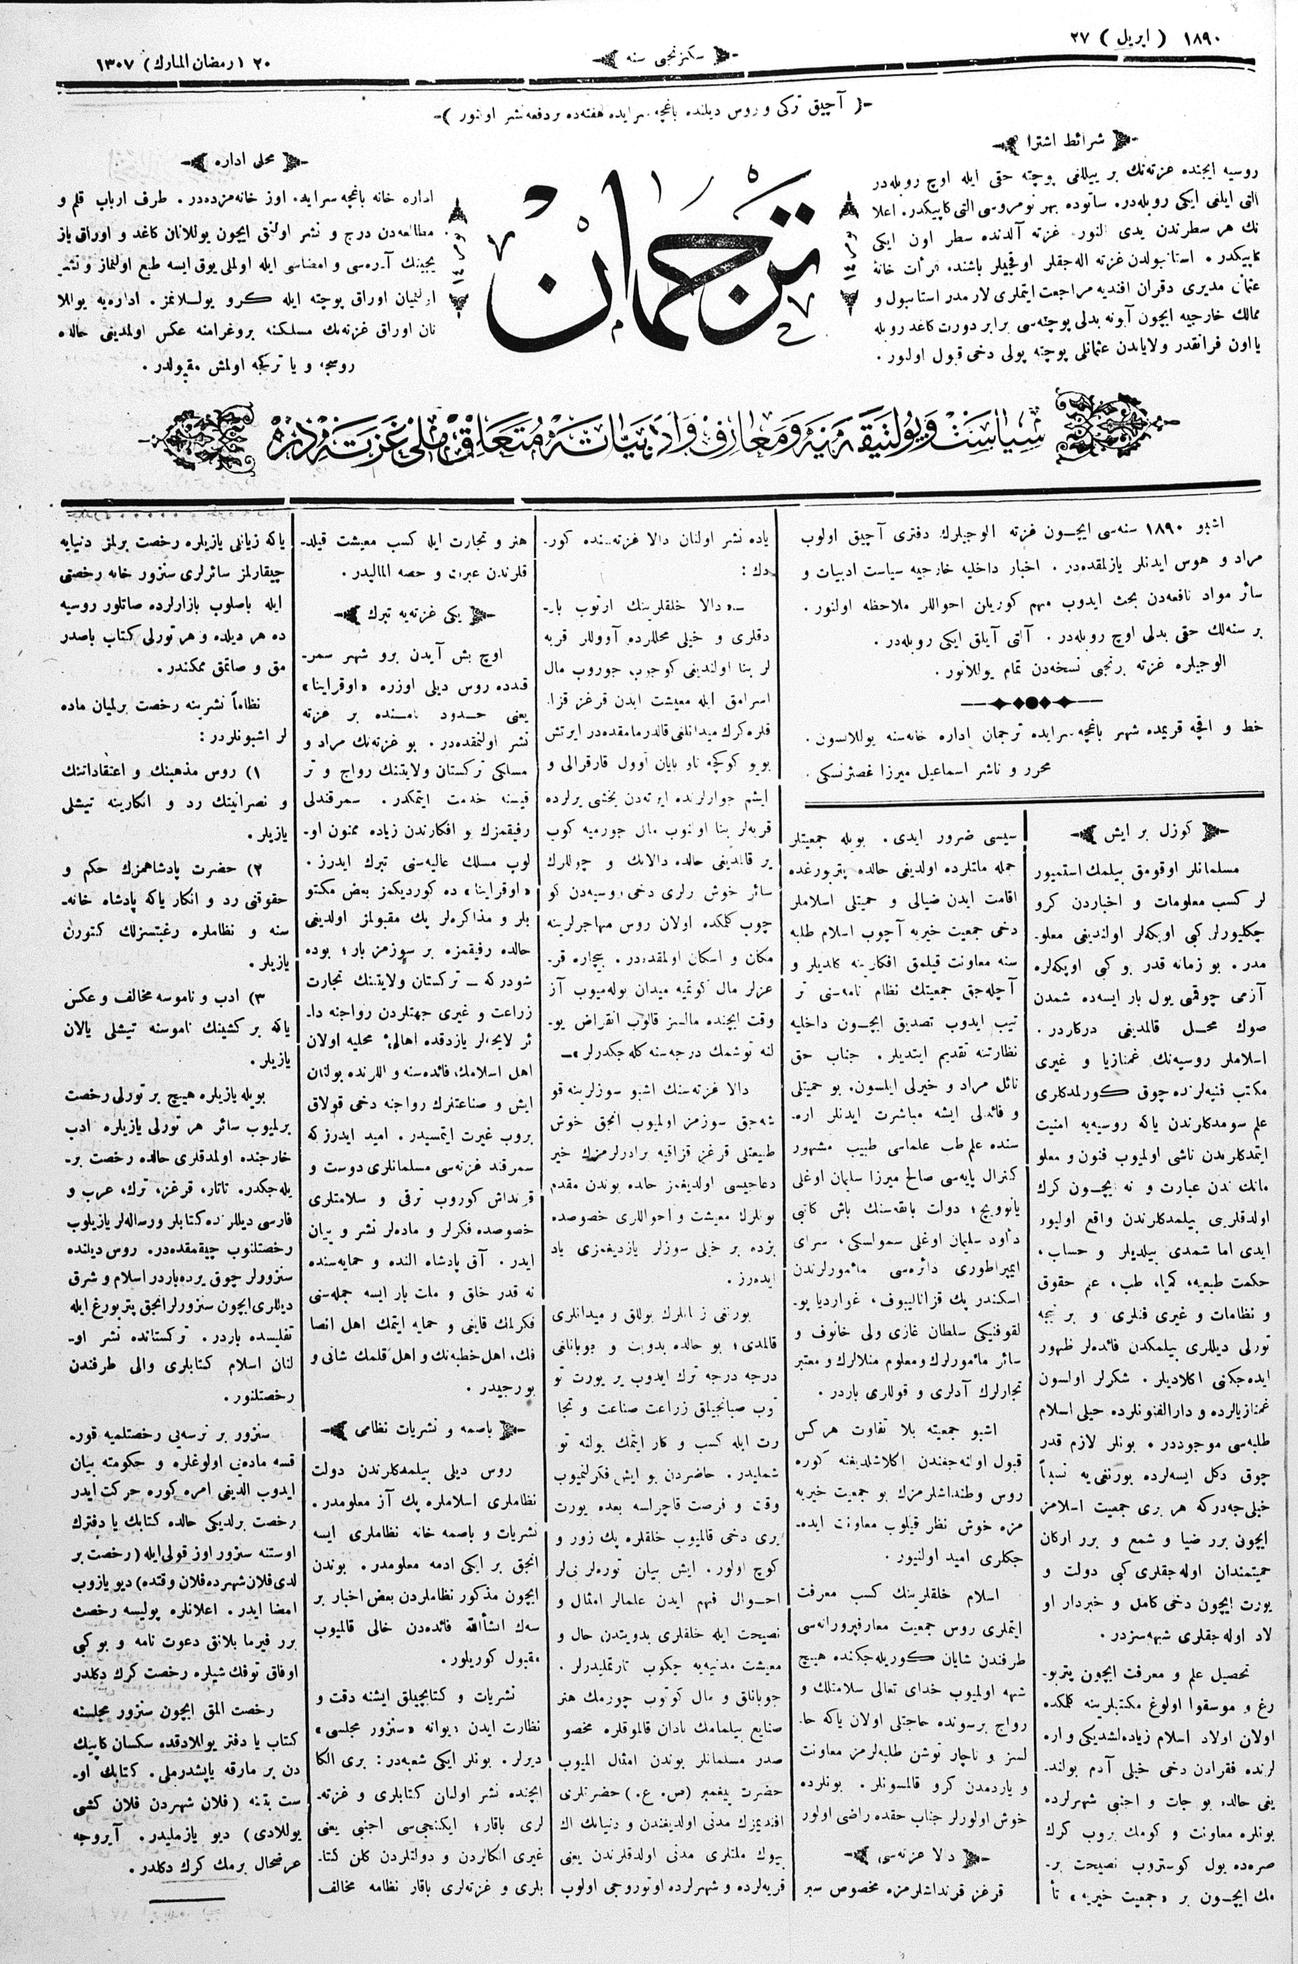 ١٨٩٠ ( ابريل ) ٢٧
سكزنجى سنه
٢٠ ( رمضان المبارك ) ١٣٠٧
( آچيق تركى و روس ديلنده باغچه سرايده هفته‌ده بر دفعه نشر اولنور )
شرائط اشترا
روسيه ايچنده غزته‌نك بر ييللغى پوچته حقى ايله اوچ روبله‌در
التى ايلغى ايكى روبله‌در. ساتوده بهر نومروسى التى كاپيكدر. اعلا
نك هر سطرندن يدى النور. غزته آلدنده سطر اون ايكى
كاپيكدر. استانبولدن غزته اله‌جقلر
عثمان مديرى دقران افنديه مراجعت ايتملرى لازمدر استانبول و
ممالك خارجيه ايچون آبونه بدلى پوچته‌سى برابر دورت كاغد روبله
يا اون فرانقدر ولاياتدن عثمانلى پوچته پولى دخى قبول اولنور.
ترجمان
محلى اداره
اداره خانه باغچه سرايده، اوز خانه‌مزده‌در. طرف ارباب قلم و
مطالعه‌دن درج و نشر اولنق ايچون يوللانان كاغد و اوراق ياز
يجينك آدرسى و امضاسى ايله اولملى يوق ايسه طبع اولنماز و نشر
اولنميان اوراق پوچته ايله كرو يوللانمز. اداره‌يه يوللا
نان اوراق غزته‌نك مسلكنه پروغرامنه عكس اولمديغى حالده
روسجه و يا تركجه اولمش مقبولدر.
سياست و پولتيقه مدنيه و معارف و ادبياته متعلق ملى غزته‌در
اشبو ١٨٩٠ سنه‌سى ايچون غزته الوجيلرك دفترى آچيق اولوب
مراد و هوس ايدنلر يازلمقده‌در. اخبار داخليه خارجيه سياست ادبيات و
سائر مواد نافعه‌دن بحث ايدوب مهم كوريلن احواللر ملاحظه اولنور.
بر سنه‌لك حقى بدلى اوچ روبله‌در. آلتى آيلق ايكى روبله‌در.
الوجيلره غزته برنجى نسخه‌دن تمام يوللانور.
خط و اقچه قريمده شهر باغچه سرايده ترجمان اداره خانه‌سنه يوللانسون.
محرر و ناشر اسماعيل ميرزا غصپرنسكى.
كوزل بر ايش
مسلمانلر اوقومق بيلمك استميور
لر كسب معلومات و اخباردن كرو
چكليورلر كبى اوپكه‌لر اولنديغى معلو-
مدر. بو زمانه قدر بو كبى اوپكه‌لره
آزمى چوقمى يول بار ايسه‌ده شمدن
صوك محل قالمديغى دركاردر.
اسلاملر روسيه‌نك غمنازيا و غيرى
مكتب فنيه‌لرنده چوق كورلمدكلرى
علم سومدكلرندن ياكه روسيه‌يه امنيت
ايتمدكلرندن ناشى اولميوب فنون و معلو
ماتك ندن عبارت و نه ايچون كرك
اولدقلرينى بيلمدكلرندن واقع اوليور
ايدى اما شمدى بيلديلر و حساب،
حكمت طبعيه، كميا، طب، علم حقوق
و نظامات و غيرى فنلرى و بر نيجه
تورلى ديللرى بيلمكدن فائده‌لر ظهور
ايده‌جكنى اكلاديلر. شكرلر اولسون
غمنازيالرده و دار الفنونلرده خيلى اسلام
طلبه‌سى موجوددر. بونلر لازم قدر
چوق دكل ايسه‌لرده بورنغى‌يه نسبةً
خيلى‌جه‌دركه هر برى جمعيت اسلامز
ايچون برر ضيا و شمع و برر اركان
حميتمندان اوله‌جقلرى كبى دولت و
يورت ايچون دخى كامل و خبردار او
لاد اوله‌جقلرى شبهه‌سزدر.
تحصيل علم و معرفت ايچون پتربو-
رغ و موسقوا اولوغ مكتبلرينه كلمكده
اولان اولاد اسلام زياده‌لشديكى و اره
لرنده فقرادن دخى خيلى آدم بولند-
يغى حالده بوجات و اجنبى شهرلرده
بونلره معاونت و كومك بروب كرك
صره‌ده يول كوستروب نصيحت بر-
مك ايچون بر «جمعيت خيريه» تأ
سيسى ضرور ايدى. بويله جمعيتلر
جمله ملتلرده اولديغى حالده پتربورغده
اقامت ايدن ضيالى و حميتلى اسلاملر
دخى جمعيت خيريه آچوب اسلام طلبه
سنه معاونت قيلمق افكارينه كلديلر و
آچله‌جق جمعيتك نظام نامه‌سنى تر
تيب ايدوب تصديق ايچون داخليه
نظارتنه تقديم ايتديلر. جناب حق
نائل مراد و خيرلى ايلسون. بو حميتلى
و فائدلى ايشه مباشرت ايدنلر اره-
سنده علم طب علماسى طبيب مشهور
كنرال پايه‌سى صالح ميرزا سليمان اوغلى
يانوويچ؛ دولت بانقه‌سنك باش كاتبى
داود سلمان اوغلى سمولسكى، سراى
ايمپراطورى دائره‌سى مأمورلرندن
اسكندر بك قزاناليپوف، غوارديا پو-
لقوفنيكى سلطان غازى ولى خانوف و
سائر مأمورلرك و معلوم منلالرك و معتبر
تجارلرك آدلرى و قوللرى باردر.
اشبو جمعيته بلا تفاوت هركس
قبول اولنه‌جغندن اكلاشلديغنه كوره
روس وطنداشلرمزك بو جمعيت خيريه
مزه خوش نظر قيلوب معاونت ايده-
جكلرى اميد اولنيور.
اسلام خلقلرينك كسب معرفت
ايتملرى روس جمعيت معارفپرورانه‌سى
طرفندن شايان كوريله‌جكنده هيچ
شبهه اولميوب خداى تعالى سلامتلك و
رواج برسونده حاجتلى اولان ياكه حا-
لسز و ناچار توشن طلبه‌لرمز معاونت
و ياردمدن كرو قالمسونلر. بونلرده
خوش اولورلر جناب حقده راضى اولور
دالا غزته‌سى
قرغز قرنداشلرمزه مخصوص سبر
ياده نشر اولنان دالا غزته‌سنده كور-
دك:
— «دالا خلقلرينك ارتوب بار-
دقلرى و خيلى محللرده آووللر قريه
لر بنا اولنديغى كوچوب جوروب مال
اسرامق ايله معيشت ايدن قرغز قزا-
قلره كرك ميدانلغى قالدرمامقده‌در ايرتش
بويو كوكچه تاو بايان آوول قارقرالى و
ايشم جوارلرنده ايرته‌دن يخشى يرلرده
قريه‌لر بنا اولنوب مال جورميه كوب
ير قالمديغى حالده دالانك و چوللرك
سائر خوش يرلرى دخى روسيه‌دن كو
چوب كلمكده اولان روس مهاجرلرينه
مكان و اسكان اولمقده‌در. بيچاره قر-
غزلر مال كوتميه ميدان بوله‌ميوب آز
وقت ايچنده مالسز قالوب انقراض يو-
لنه توشمك درجه‌سنه كله‌جكدرلر» —
دالا غزته‌سنك اشبو سوزلرينه قو
شه‌جق سوزمز اولميوب انجق خوش
طبيعتلى قرغز قزاقيه برادرلرمزك خير
دعاجيسى اولديغمز حالده بوندن مقدم
بونلرك معيشت و احواللرى خصوصده
بزده بر خيلى سوزلر يازديغمزى ياد
ايده‌رز.
بورنغى زمانلرك بوللق و ميدانلرى
قالمدى؛ بو حالده بدويت و چوبانلغى
درجه درجه ترك ايدوب ير يورت تو
توب صبانجيلق زراعت صناعت و تجا
رت ايله كسب و كار ايتمك يولنه تو
شمليدر. حاضردن بو ايش فكرلنميوب
وقت و فرصت قاچراسه بعده يورت
يرى دخى قالميوب خلقلره پك زور و
كوچ اولور. ايش بيان توره‌لر بى‌لر
احوال فهم ايدن علمالر امثال و
نصيحت ايله خلقلرى بدويتدن حال و
معيشت مدنيه‌يه چكوب تارتمليدرلر.
جوبانلق و مال كوتوب چورمك هنر
صنايع بيلمامك نادان قالموقلره مخصو
صدر مسلمانلر بوندن امثال الميوب
حضرت پيغمبر (ص. ع.) حضرتلرى
افنديمزك مدنى اولديغندن و دنيانك اك
بيوك ملتلرى مدنى اولدقلرندن يعنى
قريه‌لرده و شهرلرده اوتوروجى اولوب
هنر و تجارت ايله كسب معيشت قيلد-
قلرندن عبرت و حصه المالیدر.
يكى غزته‌يه تبرك
اوچ بش آيدن برو شهر سمر-
قندده روس ديلى اوزره «اوقراينا»
يعنى حدود نامنده بر غزته
نشر اولنمقده‌در. بو غزته‌نك مراد و
مسلكى تركستان ولايتنك رواج و تر
قيسنه خدمت ايتمكدر. سمرقندلى
رفيقمزك بو افكارندن زياده ممنون او-
لوب مسلك عاليه‌سنى تبرك ايدرز.
«اوقراينا» ده كورديكمز بعض مكتو
بلر و مذاكره‌لر پك مقبولمز اولديغى
حالده رفيقمزه بر سوزمز بار؛ بوده
شودركه — تركستان ولايتنك تجارت
زراعت و غيرى جهتلردن رواجنه دا-
ئر لايحه‌لر يازدقده اهالئ محليه اولان
اهل اسلامك فائده‌سنه و اللرنده بولنان
ايش و صناعتلرك رواجنه دخى قولاق
بروب غيرت ايتمسيدر. اميد ايدرزكه
سمرقند غزته‌سى مسلمانلرى دوست و
قرنداش كوروب ترقى و سلامتلرى
خصوصده فكرلر و ماده‌لر نشر و بيان
ايدر. آق پادشاه النده و حمايه‌سنده
نه قدر خلق و ملت بار ايسه جمله‌سنى
فكرلمك قايغى و حمايه ايتمك اهل انصا
فك، اهل خطبه‌نك و اهل قلمك شانى و
بورجيدر.
باصمه و نشريات نظامى
روس ديلى بيلمدكلرندن دولت
نظاملرى اسلاملره پك آز معلومدر.
نشريات و باصمه خانه نظاملرى ايسه
انجق بر ايكى ادمه معلومدر. بوندن
ايچون مذكور نظاملردن بعض اخبار بر
سه‌ك انشأالله فائده‌دن خالى قالميوب
مقبول كوريلور.
نشريات و كتابچيلق ايشنه دقت و
نظارت ايدن ديوانه «سنزور مجلسى»
ديرلر. بونلر ايكى شعبه‌در: برى الكا
ايچنده نشر اولنان كتابلرى و غزته-
لرى باقار؛ ايكنجى‌سى اجنبى يعنى
غيرى الكالردن و دولتلردن كلن كتا-
بلرى و غزته‌لرى باقار نظامه مخالف
ياكه زيانلى يازيلره رخصت برلمز دنيايه
چيقارلمز سائرلرى سنزور خانه رخصتى
ايله باصلوب بازارلرده صاتلور روسيه
ده هر ديلده و هر تورلى كتاب باصدر
مق و صاتمق ممكندر.
نظاماً نشرينه رخصت برلميان ماده
لر اشبونلردر:
١) روس مذهبنك و اعتقاداتنك
و نصرانيتك رد و انكارينه تيشلى
يازيلر.
٢) حضرت پادشاهمزك حكم و
حقوقنى رد و انكار ياكه پادشاه خانه-
سنه و نظاملره رغبتسزلك كتورن
يازيلر.
٣) ادب و ناموسه مخالف و عكس
ياكه بر كشينك ناموسنه تيشلى يالان
يازيلر.
بويله يازيلره هيچ بر تورلى رخصت
برلميوب سائر هر تورلى يازيلره ادب
خارجنده اولمدقلرى حالده رخصت بر-
يله‌جكدر. تاتار، قرغز، ترك، عرب و
فارسى ديللرنده كتابلر و رساله‌لر يازيلوب
رخصتلنوب چيقمقده‌در. روس ديلنده
سنزورلر چوق يرده باردر اسلام و شرق
ديللرى ايچون سنزورلر انجق پتربورغ ايله
تفليسده باردر. تركستانده نشر او-
لنان اسلام كتابلرى والى طرفندن
رخصتلنور.
سنزور بر نرسه‌يى رخصتلميه قور-
قسه ماده‌يى اولوغلره و حكومته بيان
ايدوب الديغى امره كوره حركت ايدر
رخصت برلديكى حالده كتابك يا دفترك
اوستنه سنزور اوز قولى ايله (رخصت بر
لدى فلان شهرده فلان وقتده) ديو يازوب
امضا ايدر. اعلانلره پوليسه رخصت
برر فيرما بلانق دعوت نامه و بو كبى
اوفاق توفك شيلره رخصت كرك دكلدر
رخصت المق ايچون سنزور مجلسنه
كتاب يا دفتر يوللادقده سكسان كاپيك
دن بر مارقه ياپشدرملى. كتابك او-
ست بتنه (فلان شهردن فلان كشى
يوللادى) ديو يازمليدر. آيروجه
عرضحال برمك كرك دكلدر.